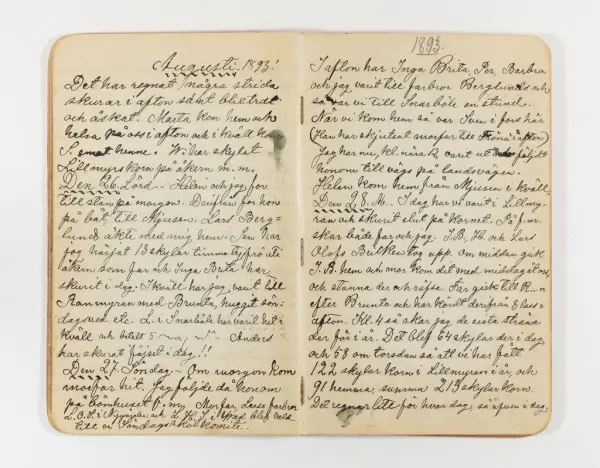 Augusti. 1893!
Det har regnat några strida
skurar i afton samt blixtrat
och åskat. Märta kom hem och
helsa på oss i afton och i kväll kom
S. emot henne. Vi har skylat
Lillmyrskorn på åkern m. m.
Den 26. Lörd. — Helen och jag for
till slån på morgon. Derifrån for hon
på båt, till Njusen. Lars Berg-
lunds åkte med mig hem. Sen har
jag hässjat 13 skylar timmotej från
åkern som far och Inga Brita har
skurit i dag. I kväll har jag varit till
Ranmyran med Brunta, huggit sön-
dagsved etc. L. i Snarböle har varit hit i
kväll och betalt 5 Anders
har skurat fäjset i dag!!
Den 27. Söndag. — Om morgon kom
morfar hit. Jag följde då honom
på bönhuset f. m. Morfar, Lasse farbror
L. O. S. i och L. H. S. i blef vald
till en Söndagsskolkomité.
1893.
I afton har Inga Brita, Per, Barbro
och jag varit till farbror Berglunds och
så var vi till Snarböle en stund.
När vi kom hem så var Sven i fors här
(Han har skjutsat morfar till Fröna i afton)
Jag har nu, kl. nära 12 varit ut följt
honom till vägs på landsvägen.
Helen kom hem från Njusen i kväll.
Den 28. M. — I dag har vi varit i Lillmy-
ran och skurit slut på kornet. Så f. m.
skar både far och jag. I. B., H. och Lars
Olofs Britken tog upp. Om middan gick
I. B. hem och mor kom dit med middag åt oss,
och stanna der och räfsa. Far gick till R...n
efter Brunta och har kördt derifrån 8 lass i
afton. Kl. 4 så skar jag de sista stråna
der för i år. Det blef 64 skylar der i dag
och 58 om torsdan så att vi har fått
122 skylar korn i Lillmyran i år, och
91 hemma, summa 213 skylar korn.
Det regnar lite för hvar dag, så äfven i dag.